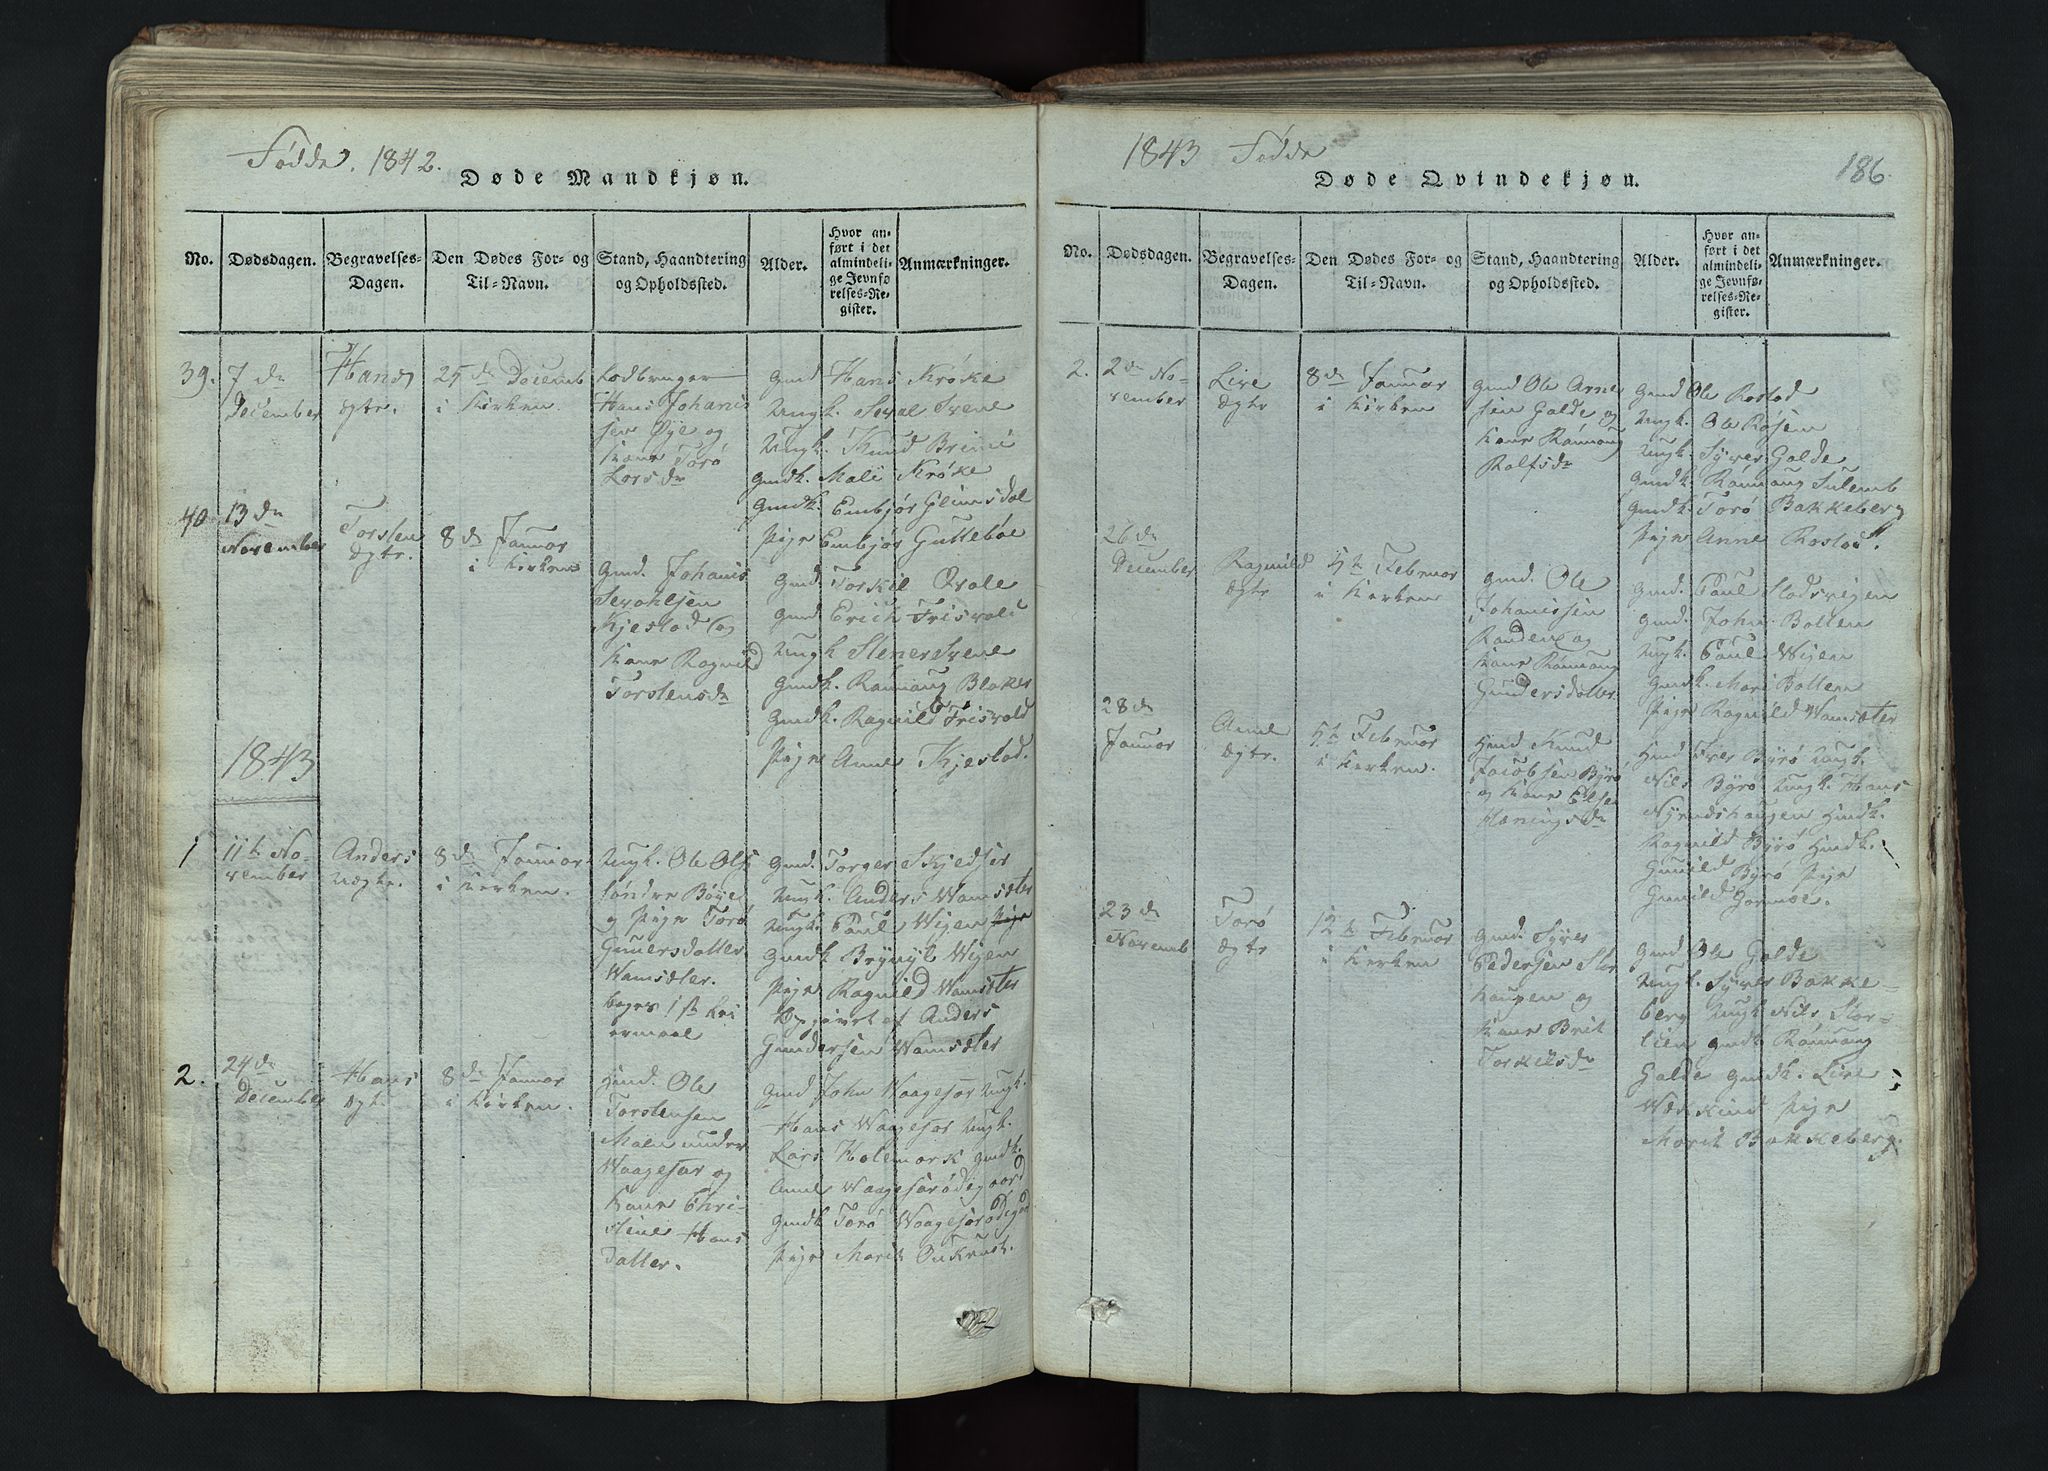 Fødde. 1842.
Døde Mandkjøn.
No. Dødsdagen. Begravelses-Dagen. Den Dødes For- og Til-Navn. Stand, Haandtering og Opholdssted. Alder. Hvor anført i det almindelige Jevnførelses-Register. Anmærkninger.
39. 7 de December
Hans Ægte.
25 de Decemb i Kirken
Hans Johanis
sen Øye og
Kone Torø
Larsdr
Gmd Hans Krøke
Ungk. Seval Svene
Ungk. Knud
Gmdk. Mali Krøke
Gmdk. Embjør Glimsdal
Pige Embjør Guttebøe
40 13 de November
Torsten Ægte.
8 de Januar i Kirken
Gmd. Johanis
Kjestad og
Kone Ragnild
Torstensdr
Gmd. Torkil Qvale
Gmd Erich Frisvold
Ungk Stener Svene
Gmdk. Rannaug Blaker
Gmdk. Ragnild Frisvold
Pige Anne Kjestad.
1843
1 11te November
Anders Uægte.
8 de Januar i Kirken.
Ungk. Ole Ols
søndre Bøye
og Pige Torø
datter
Wamsæter.
begges 1ste Lei
ermaal
Gmd. Torger Skjedser
Ungk. Anders Wamsæter
Ungk. Paul Wigen Pige
Gmdk Brynyl Wigen
Pige Ragnild Wamsæter
Opgivet af Anders
Gundersen Wamsæter
2. 24 de December
Hans Ægte
8 de Januar i Kirken.
Hmd. Ole
Torstensen
Moen under
Waagesar og
Kone Chri-
stine Hans
datter.
Gmd John Waagesar Ungk.
Hans Waagesar Ungk.
Lars Holemork Gmdk.
Anne Waagesarødegaard
Gmdk Torø Waagesarødegrd
Pige Marit Onkrust.
1843 Fødde
186
Døde Qvindekjøn.
No. Dødsdagen. Begravelses-Dagen. Den Dødes For- og Til-Navn. Stand, Haandtering og Opholdssted. Alder. Hvor anført i det almindelige Jevnførelses-Register. Anmærkninger.
2. 2 de November
Live Ægte
8 de Januar i Kirken
Gmd Ole Arne
sen Galde og
Kone Rannaug
Rolfsdr
Gmd Ole Rostad
Ungk. Ole Røsen
Ungk. Syver Galde
Gmdk. Rannaug Sulemb
Gmdk. Torø Bakkeberg
Pige Anne Rostad.
26 de December
Ragnild Ægte
5te Februar i Kirken
Gmd. Ole
Johanissen
Randen og
Kone Rannaug
Gundersdatter
Gmd. Paul Stadsvigen
Gmd. John Botten
Ungk. Paul Wigen
Gmdk. Mari Botten
Pige Ragnild Wamsæter
28 de Januar
Anne Ægte.
5te Februar i Kirken.
Hmd Knud
Jacobsen Byrø
og Kone Else
Hæningsdr
Hmd Iver Byrø Ungk.
Nils Byrø Ungk. Hans
Hmdk.
Ragnild Byrø Hmdk.
Gunild Byrø Pige
Gunild Gormoe.
23 de Novemb
Torø Ægte
12te Februar i Kirken
Gmd. Syver
Pedersen Stor
haugen og
Kone Brit
Torkelsdr
Gmd. Ole Galde
Ungk. Syver Bakke-
berg Ungk Nils Stor-
lien Gmdk Rannaug
Galde Gmdk. Live
Wækkind Pige
Marit Bakkeberg.